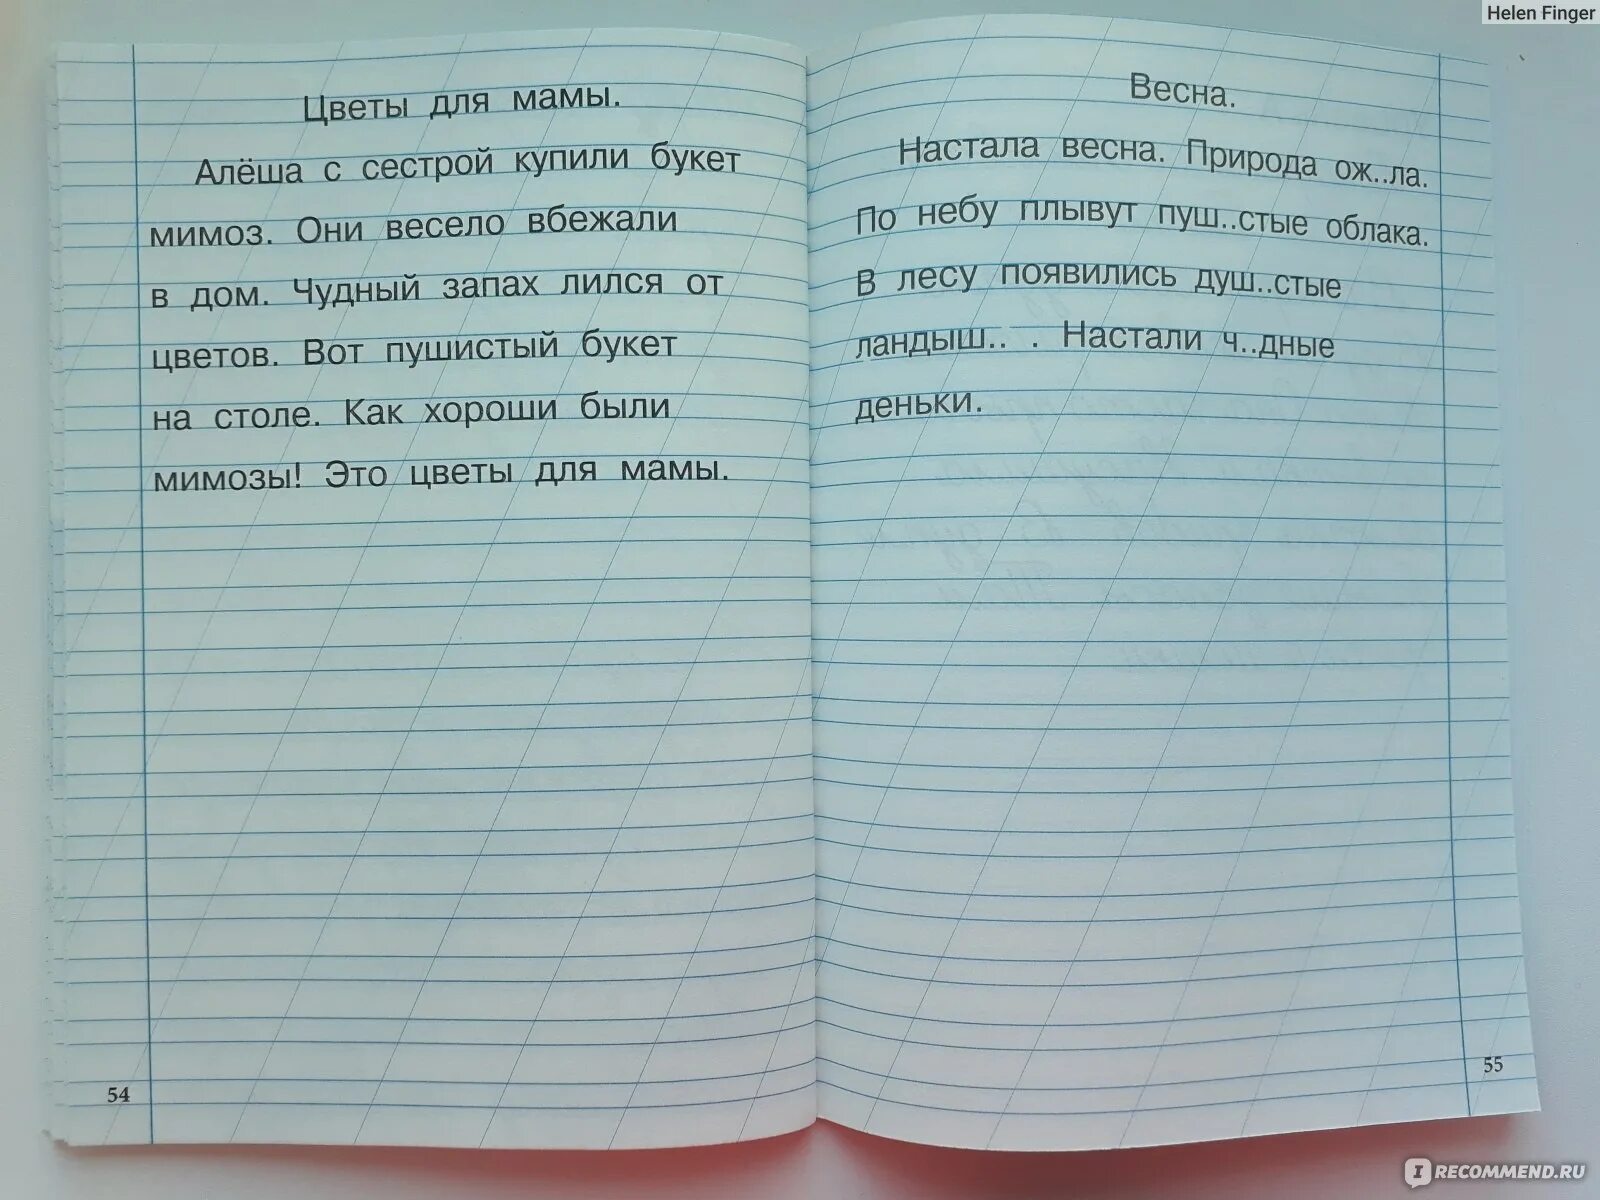 Helen Finger
Цветы для мамы.
Алёша с сестрой купили букет
мимоз. Они весело вбежали
в дом. Чудный запах лился от
цветов. Вот пушистый букет
на столе. Как хороши были
мимозы! Это цветы для мамы.
54
Весна.
Настала весна. Природа ож..ла.
По небу плывут пуш..стые облака.
В лесу появились душ..стые
ландыш.. . Настали ч..дные
деньки.
55
IRECOMMEND.RU